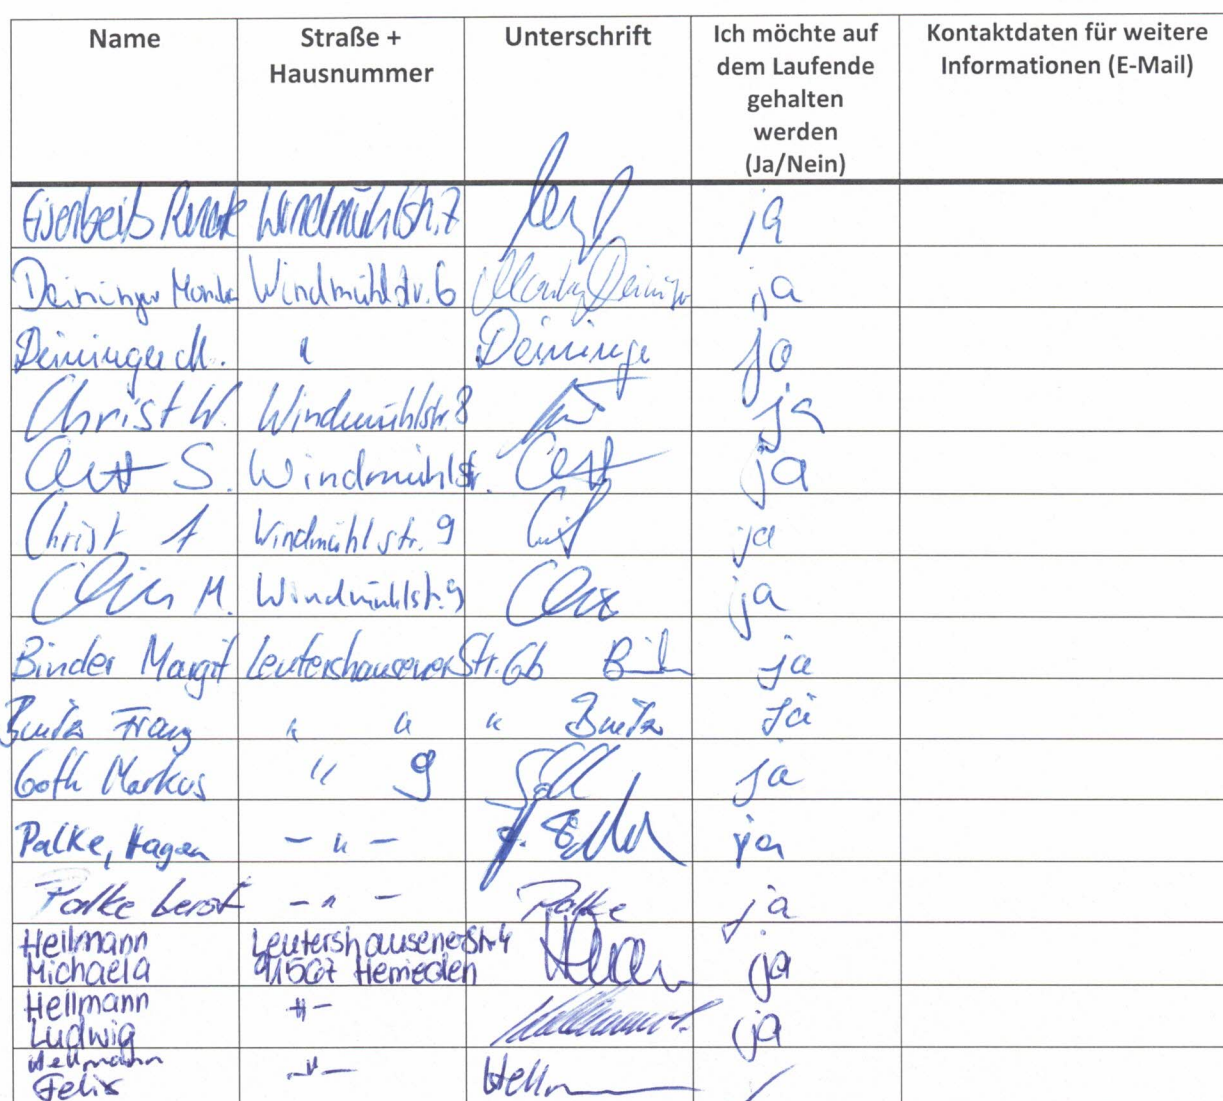 Name Straße + Hausnummer Unterschrift Ich möchte auf dem Laufende gehalten werden (Ja/Nein) Kontaktdaten für weitere Informationen (E-Mail)
Windmühlstr. 7 ja
Deininger Windmühlstr. 6 Deininger ja
Deininger M. " Deininge ja
Christ W. Windmühlstr. 8 ja
S. Windmühlstr. ja
Christ A Windmühlstr. 9 ja
M. Windmühlstr. 9 ja
Binder Margit Leutershausener Str. 6b ja
Franz " " " ja
Goth Markus " 9 ja
Palke, Hagen - " - ja
Palke - " - Palke ja
Heilmann
Michaela Leutershausener Str. 4
91567 Herrieden ja
Heilmann
Ludwig -"- ja
Heilmann
Felix -"-